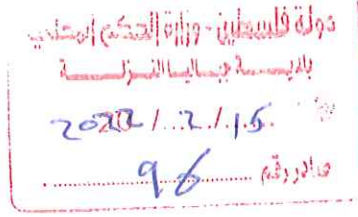 دولة فلسطين - وزارة الحكم المحلي
بلديـــــة جباليـا النـزلـــــة
2022 / 2 / 15
صادر رقم 96